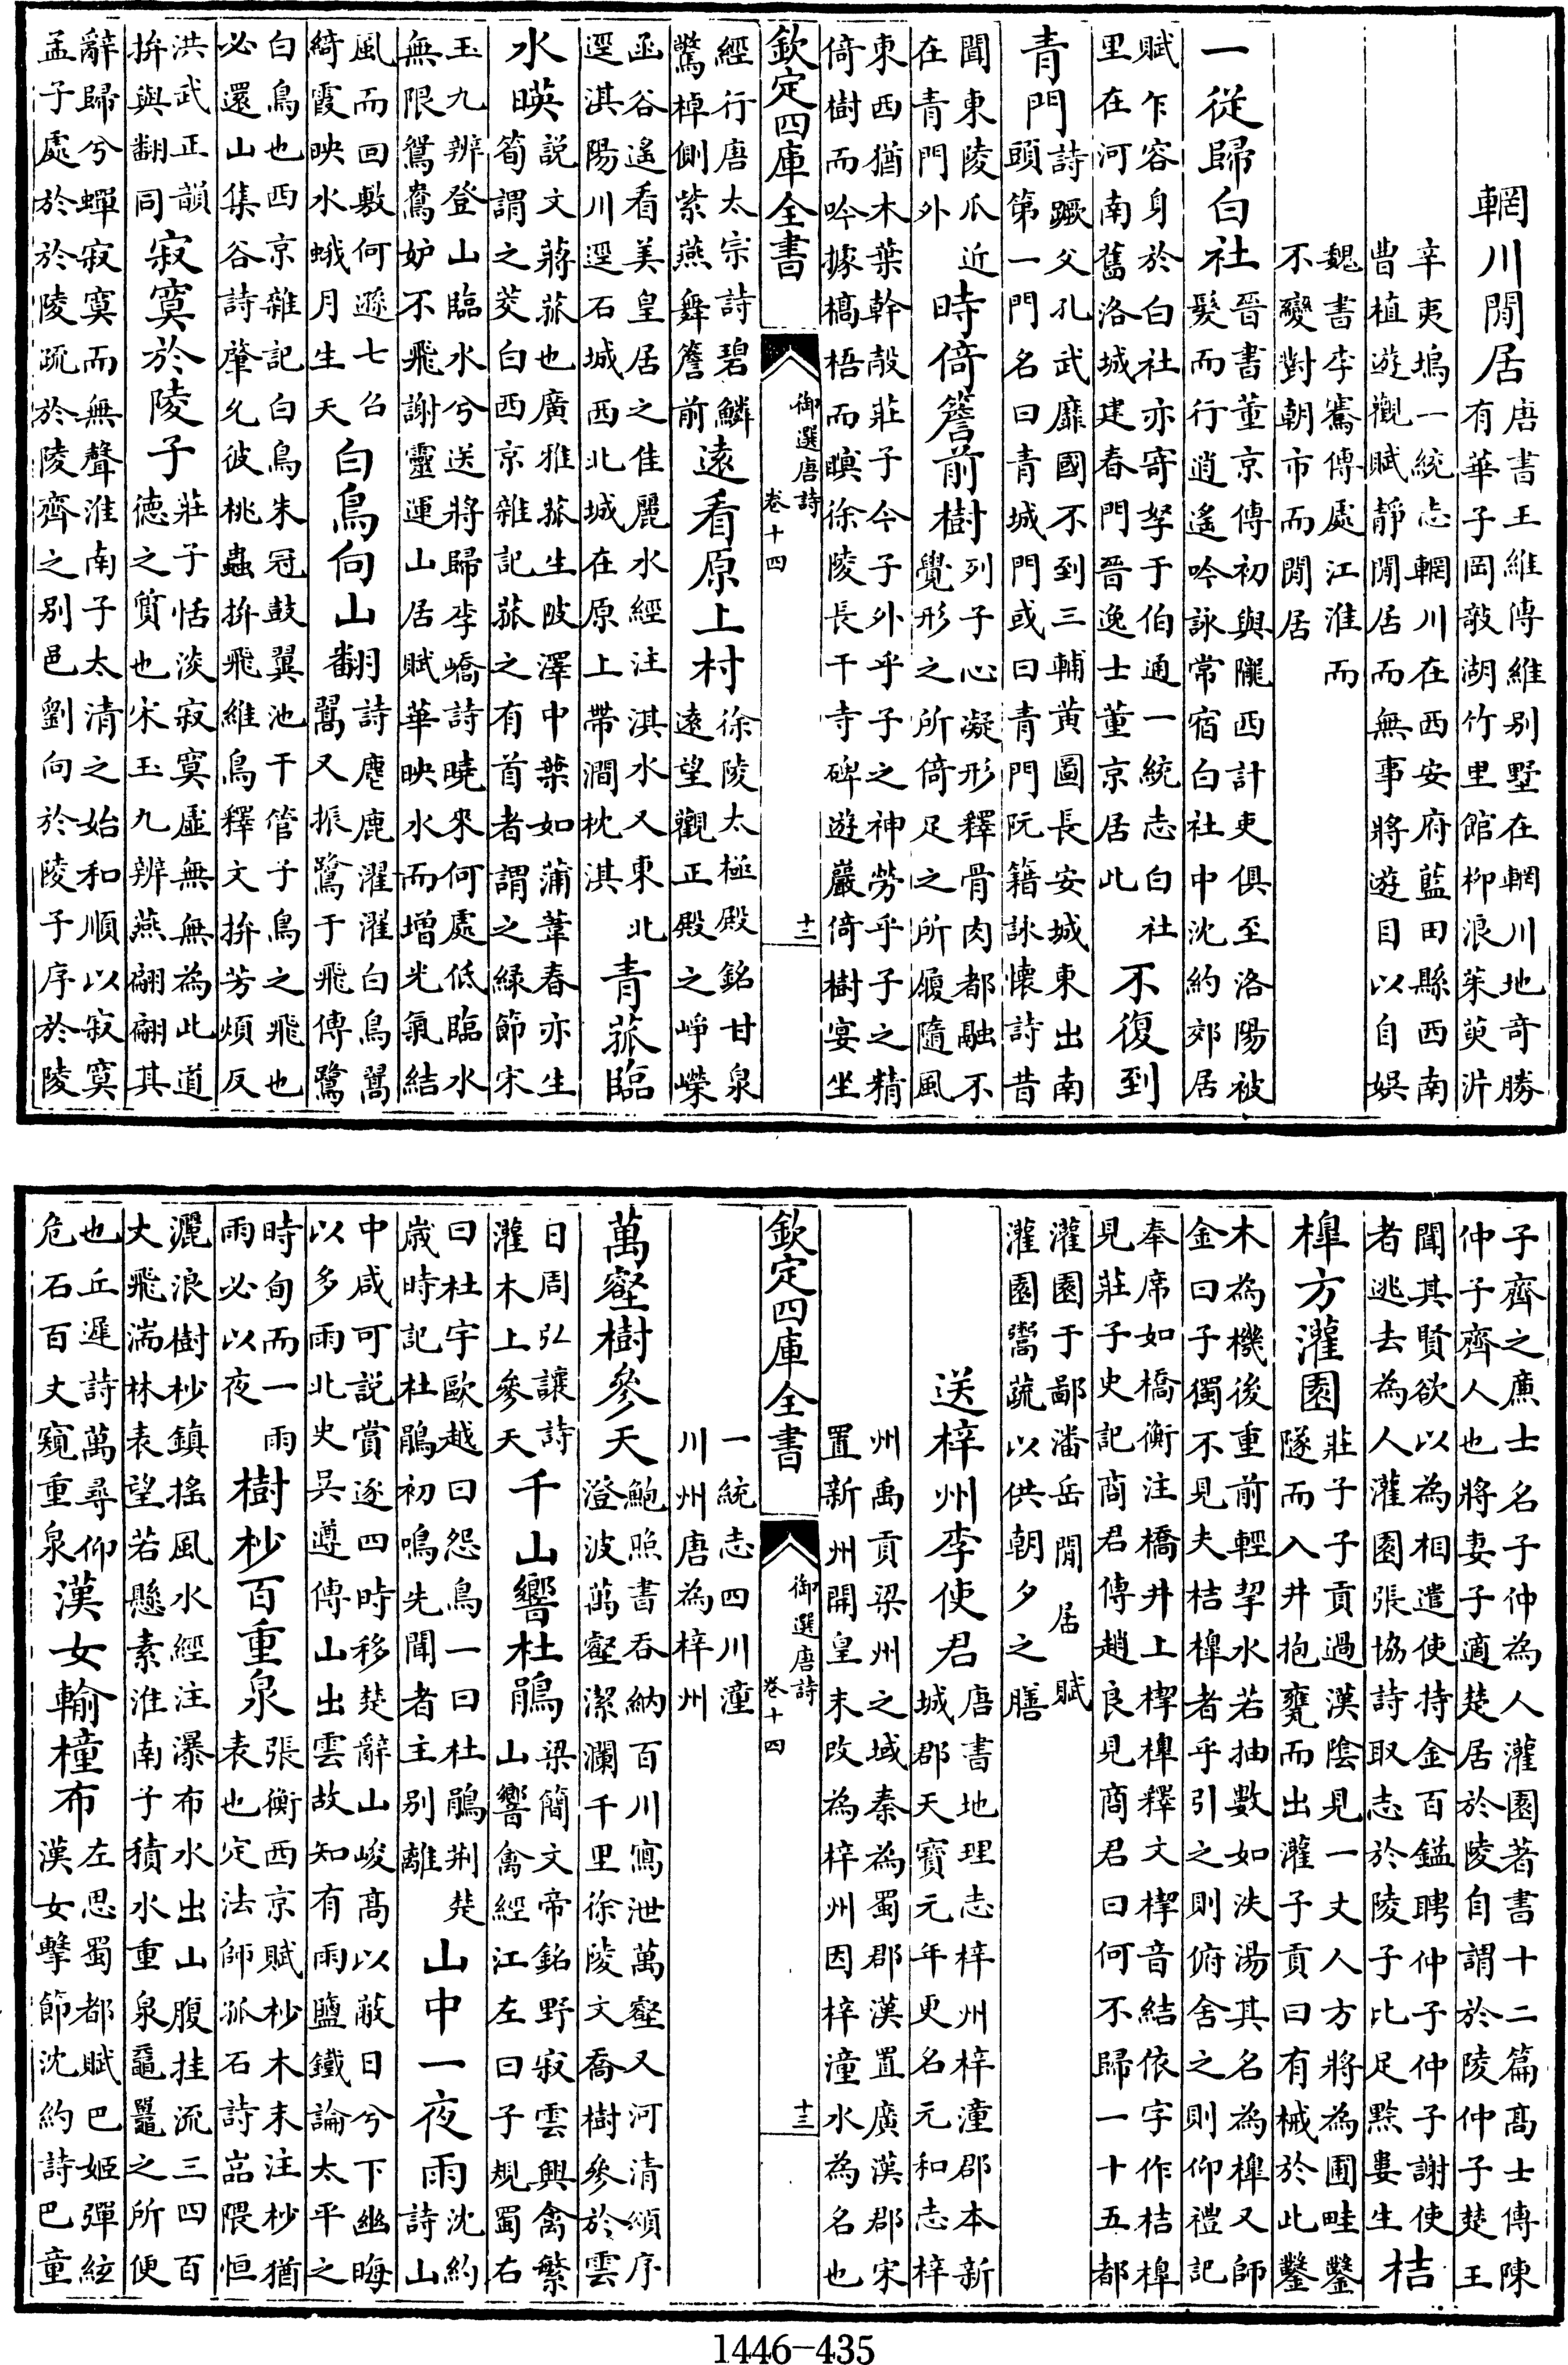 輞川閒居
唐書王維傳維别墅在輞川地奇勝
有華子岡敧湖竹里館柳浪茱萸沜
辛夷塢一統志輞川在西安府藍田縣西南
曹植遊觀賦靜閒居而無事將遊目以自娱
魏書李騫傳處江淮而
不變對朝市而閒居
一從歸白社
晉書董京傳初與隴西計吏俱至洛陽被
髮而行逍遙吟詠常宿白社中沈約郊居
賦乍容身於白社亦寄孥于伯通一統志白社
里在河南舊洛城建春門晉逸士董京居此
不復到
青門
詩蹶父孔武靡國不到三輔黄圖長安城東出南
頭第一門名曰青城門或曰青門阮籍詠懷詩昔
聞東陵瓜近
在青門外
時倚簷前樹
列子心凝形釋骨肉都融不
覺形之所倚足之所履隨風
東西猶木葉幹殼莊子今子外乎子之神勞乎子之精
倚樹而吟據槁梧而瞑徐陵長干寺碑遊巖倚樹宴坐
欽定四庫全書
御選唐詩
卷十四
十二
經行唐太宗詩碧鱗
驚棹側紫燕舞簷前
遠看原上村
徐陵太極殿銘甘泉
遠望觀正殿之崢嶸
函谷遙看美皇居之佳麗水經注淇水又東北
逕淇陽川逕石城西北城在原上帶澗枕淇
青菰臨
水映
説文蔣菰也廣雅菰生陂澤中葉如蒲葦春亦生
筍謂之茭白西京雜記菰之有首者謂之緑節宋
玉九辨登山臨水兮送將歸李嶠詩曉來何處低臨水
無限鴛鴦妒不飛謝靈運山居賦華映水而增光氣結
風而回敷何遜七召
綺霞映水蛾月生天
白鳥向山翻
詩麀鹿濯濯白鳥翯
翯又振鷺于飛傳鷺
白鳥也西京雜記白鳥朱冠鼓翼池干管子鳥之飛也
必還山集谷詩肇允彼桃蟲拚飛維鳥釋文拚芳煩反
洪武正韻
拚與翻同
寂寞於陵子
莊子恬淡寂寞虚無無為此道
德之質也宋玉九辨燕翩翩其
辭歸兮蟬寂寞而無聲淮南子太清之始和順以寂寞
孟子處於於陵疏於陵齊之别邑劉向於陵子序於陵
子齊之亷士名子仲為人灌園著書十二篇髙士傳陳
仲子齊人也將妻子適楚居於陵自謂於陵仲子楚王
聞其賢欲以為相遣使持金百鎰聘仲子仲子謝使
者逃去為人灌園張協詩取志於陵子比足黔婁生
桔
槔方灌園
莊子子貢過漢陰見一丈人方將為圃畦鑿
隧而入井抱甕而出灌子貢曰有械於此鑿
木為機後重前輕挈水若抽數如泆湯其名為槔又師
金曰子獨不見夫桔槔者乎引之則俯舍之則仰禮記
奉席如橋衡注橋井上㮮槔釋文㮮音結依字作桔槔
見莊子史記商君傳趙良見商君曰何不歸一十五都
灌園于鄙潘岳閒居賦
灌園鬻蔬以供朝夕之膳
送梓州李使君
唐書地理志梓州梓潼郡本新
城郡天寶元年更名元和志梓
州禹貢梁州之域秦為蜀郡漢置廣漢郡宋
置新州開皇末改為梓州因梓潼水為名也
欽定四庫全書
御選唐詩
卷十四
十三
一統志四川潼
川州唐為梓州
萬壑樹參天
鮑照書吞納百川寫泄萬壑又河清頌序
澄波萬壑潔瀾千里徐陵文喬樹參於雲
日周弘讓詩
灌木上參天
千山響杜鵑
梁簡文帝銘野寂雲興禽繁
山響禽經江左曰子規蜀右
曰杜宇歐越曰怨鳥一曰杜鵑荆楚
歲時記杜鵑初鳴先聞者主别離
山中一夜雨
沈約
詩山
中咸可説賞逐四時移楚辭山峻髙以蔽日兮下幽晦
以多雨北史吳遵傳山出雲故知有雨鹽鐵論太平之
時旬而一雨
雨必以夜
樹杪百重泉
張衡西京賦杪木末注杪猶
表也定法師孤石詩嵓隈恒
灑浪樹杪鎮搖風水經注瀑布水出山腹挂流三四百
丈飛湍林表望若懸素淮南子積水重泉黿鼉之所便
也丘遲詩萬尋仰
危石百丈窺重泉
漢女輸橦布
左思蜀都賦巴姬彈絃
漢女擊節沈約詩巴童
1446-435